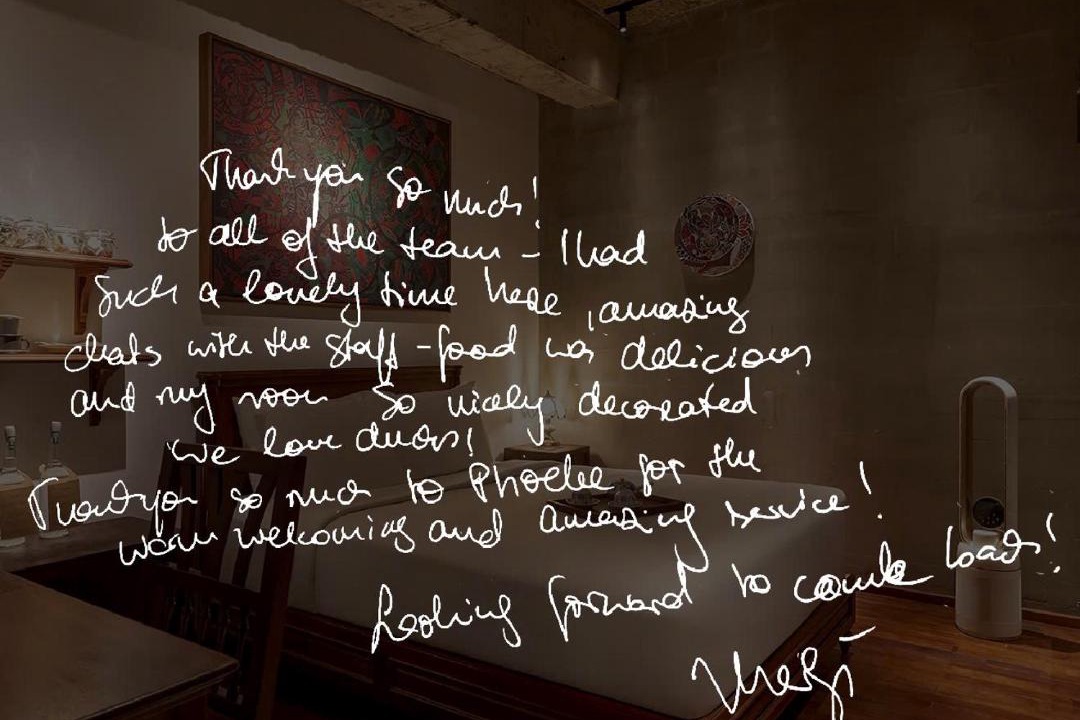 Thank you so much!
to all of the team - I had
such a lovely time here, amazing
chats with the staff - food was delicious
and my room so nicely decorated
We love
Thank you so much to Phoebe for the
warm welcoming and amazing service!
Looking forward to come back!